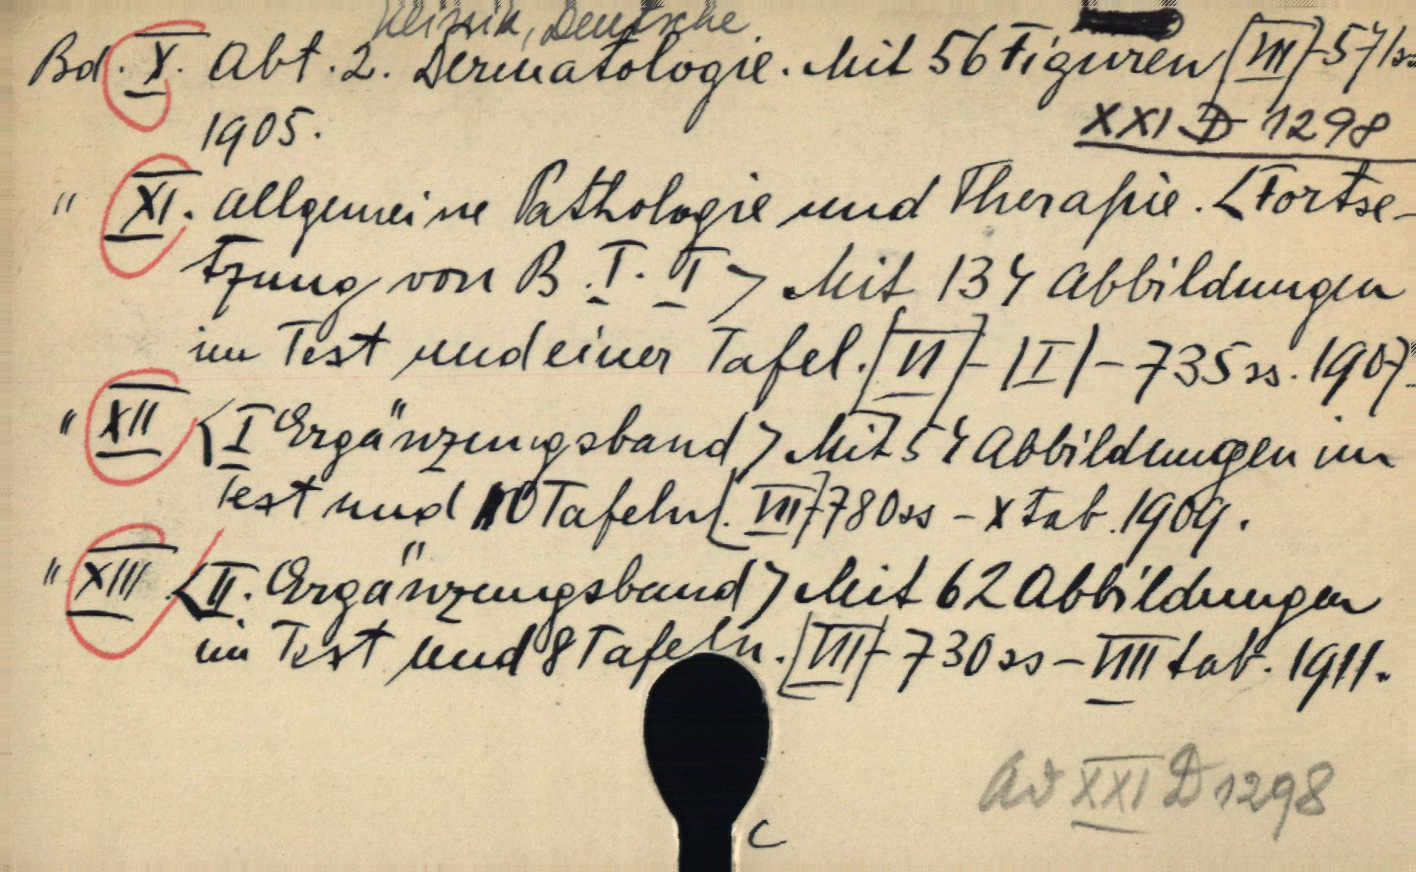 Klinik, Deutsche
Bd. X. Abt. 2. Dermatologie. Mit 56 Figuren [VII]-571ss
1905.
XXI D 1298
" XI. Allgemeine Pathologie und Therapie. <Fortse-
tzung von B. I. I> Mit 134 Abbildungen
im Text und einer Tafel. [VI]-(I)-735ss. 1907.
" XII <I Ergänzungsband> Mit 54 Abbildungen im
Text und 10 Tafeln [VII]-780ss - X tab. 1909.
" XIII <II. Ergänzungsband> Mit 62 Abbildungen
im Text und 8 Tafeln. [VII]-730ss - VIII tab. 1911.
Ad XXI D 1298
C